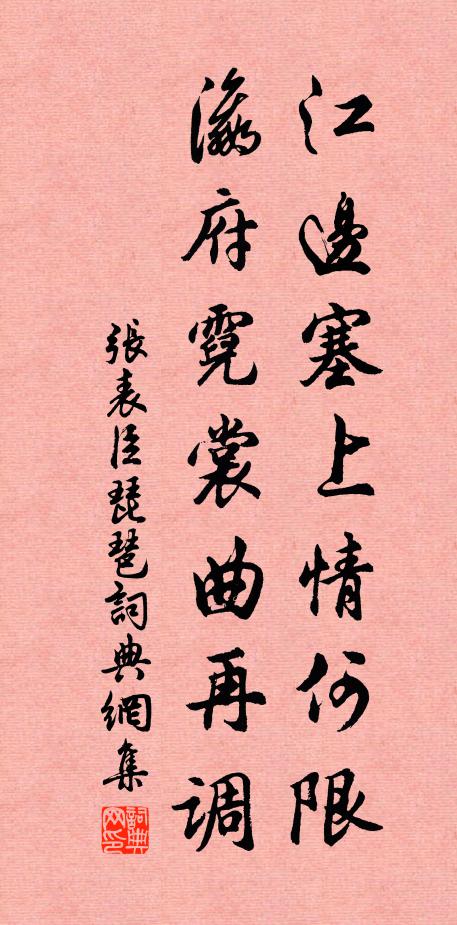 江邊塞上情何限
瀛府霓裳曲再调
張表臣琵琶詞典網集
詞典网印